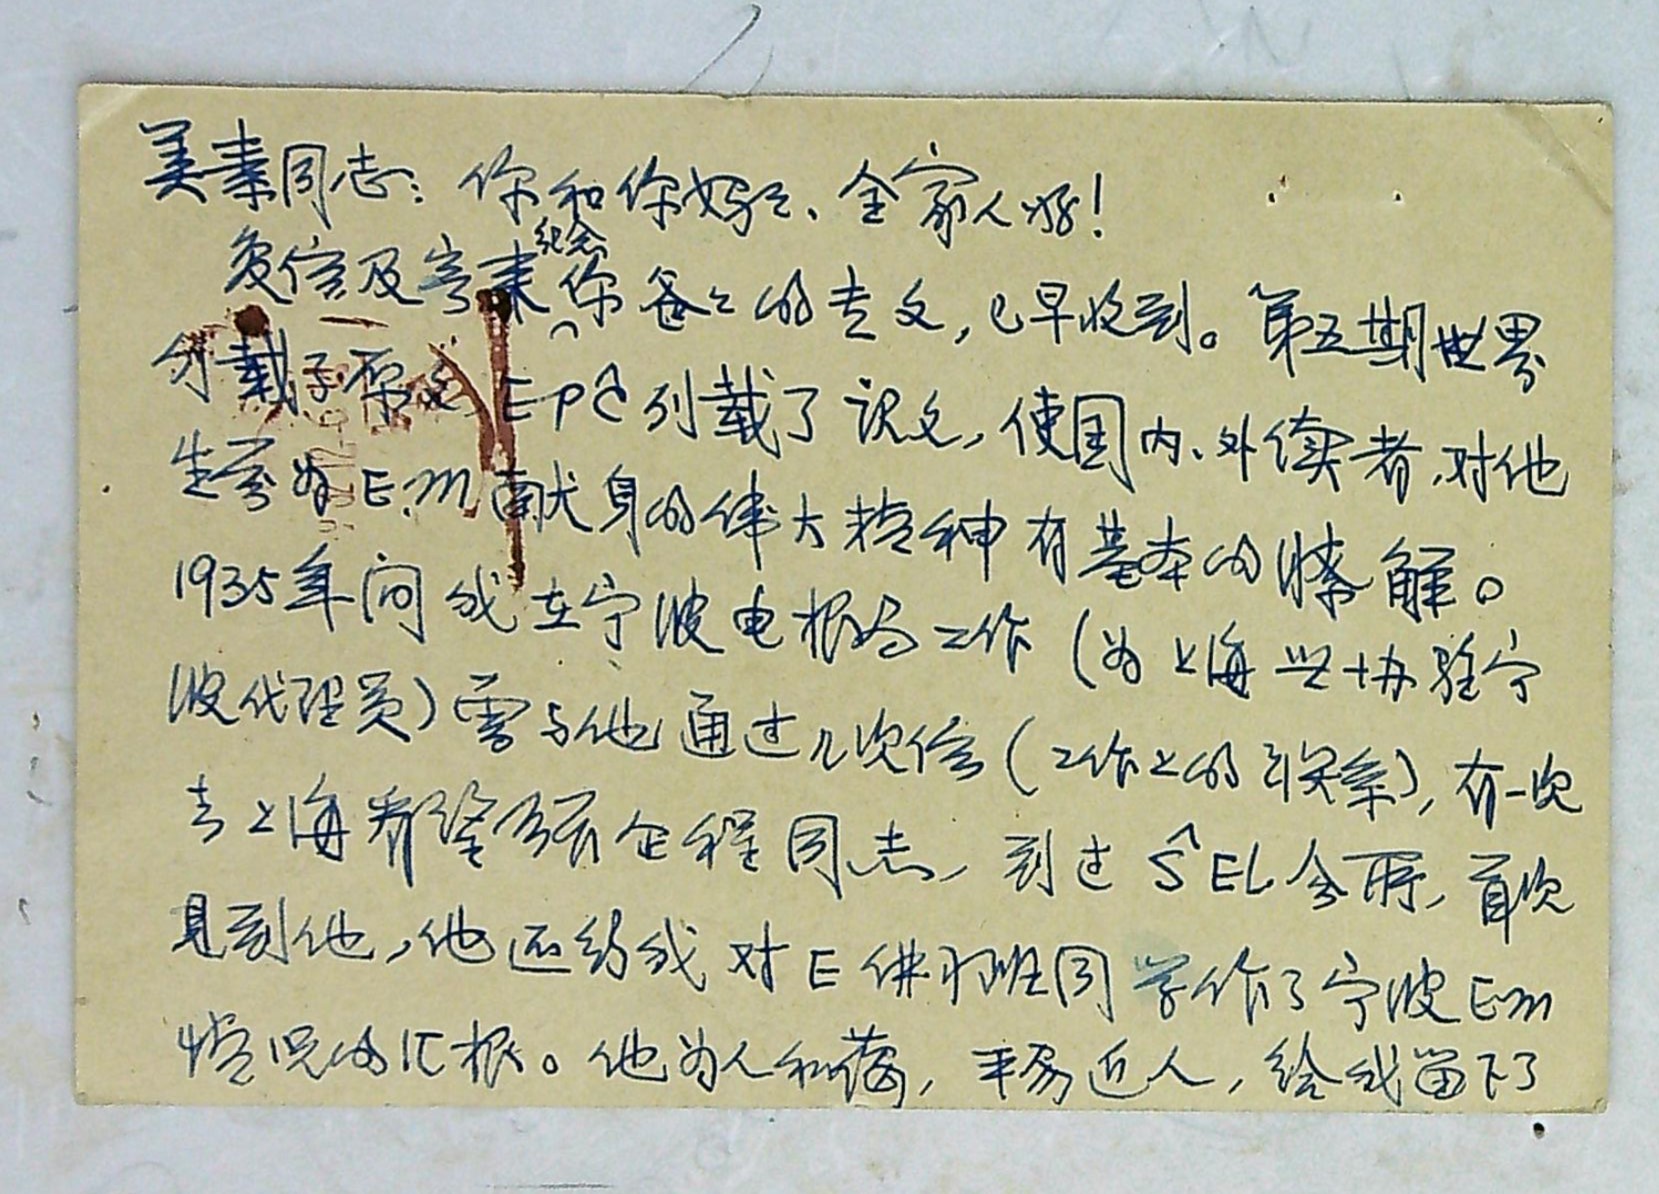 美素同志：你和你妈妈、全家人好！
复信及寄来纪念你爸爸的专文，已早收到。第五期世界
刊载了原文，EPĈ刊载了译文，使国内、外读者，对他
生前为E.m献身的伟大精神有基本的瞭解。
1935年间我在宁波电报局工作（为上海世协驻宁
波代理员）曾与他通过几次信（工作上的联系），有一次
去上海看望张企程同志，到过ŜEL会所，首次
见到他，他还约我对E 讲习班同学作了宁波E.m
情况的汇报。他为人和蔼，平易近人，给我留下了